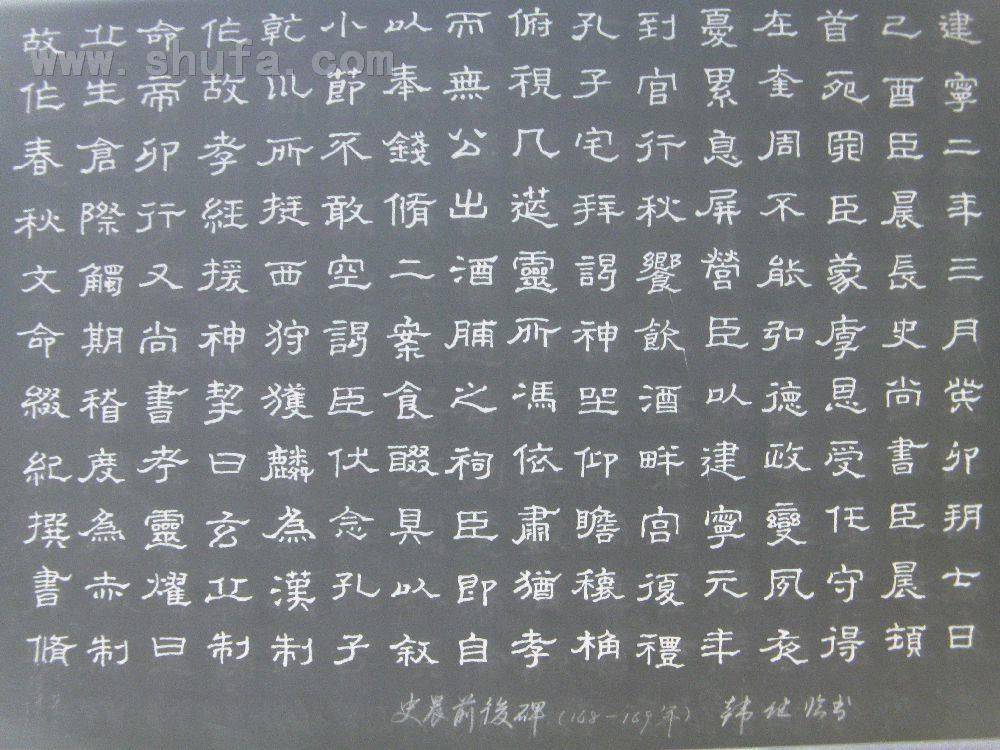 www.shufa.com
建寧二年三月癸卯朔七日
己酉臣晨長史尚書臣晨頓
首死罪臣蒙厚恩受任守得
在奎周不能弘德政變夙夜
憂累息屏營臣以建寧元年
到官行秋饗飲酒畔宮復禮
孔子宅拜謁神坐仰瞻榱桷
俯視几筵靈所馮依肅猶存
而無公出酒脯之祠臣即自
以奉錢脩上案食醊具以敘
小節不敢空謁臣伏念孔子
乾川所挺西狩獲麟為漢制
作故孝經援神挈曰玄丘制
命帝卯行又尚書考靈燿曰
丘生倉際觸期稽度為赤制
故作春秋文命綴紀撰書脩
史晨前後碑(168-169年) 韩 临书